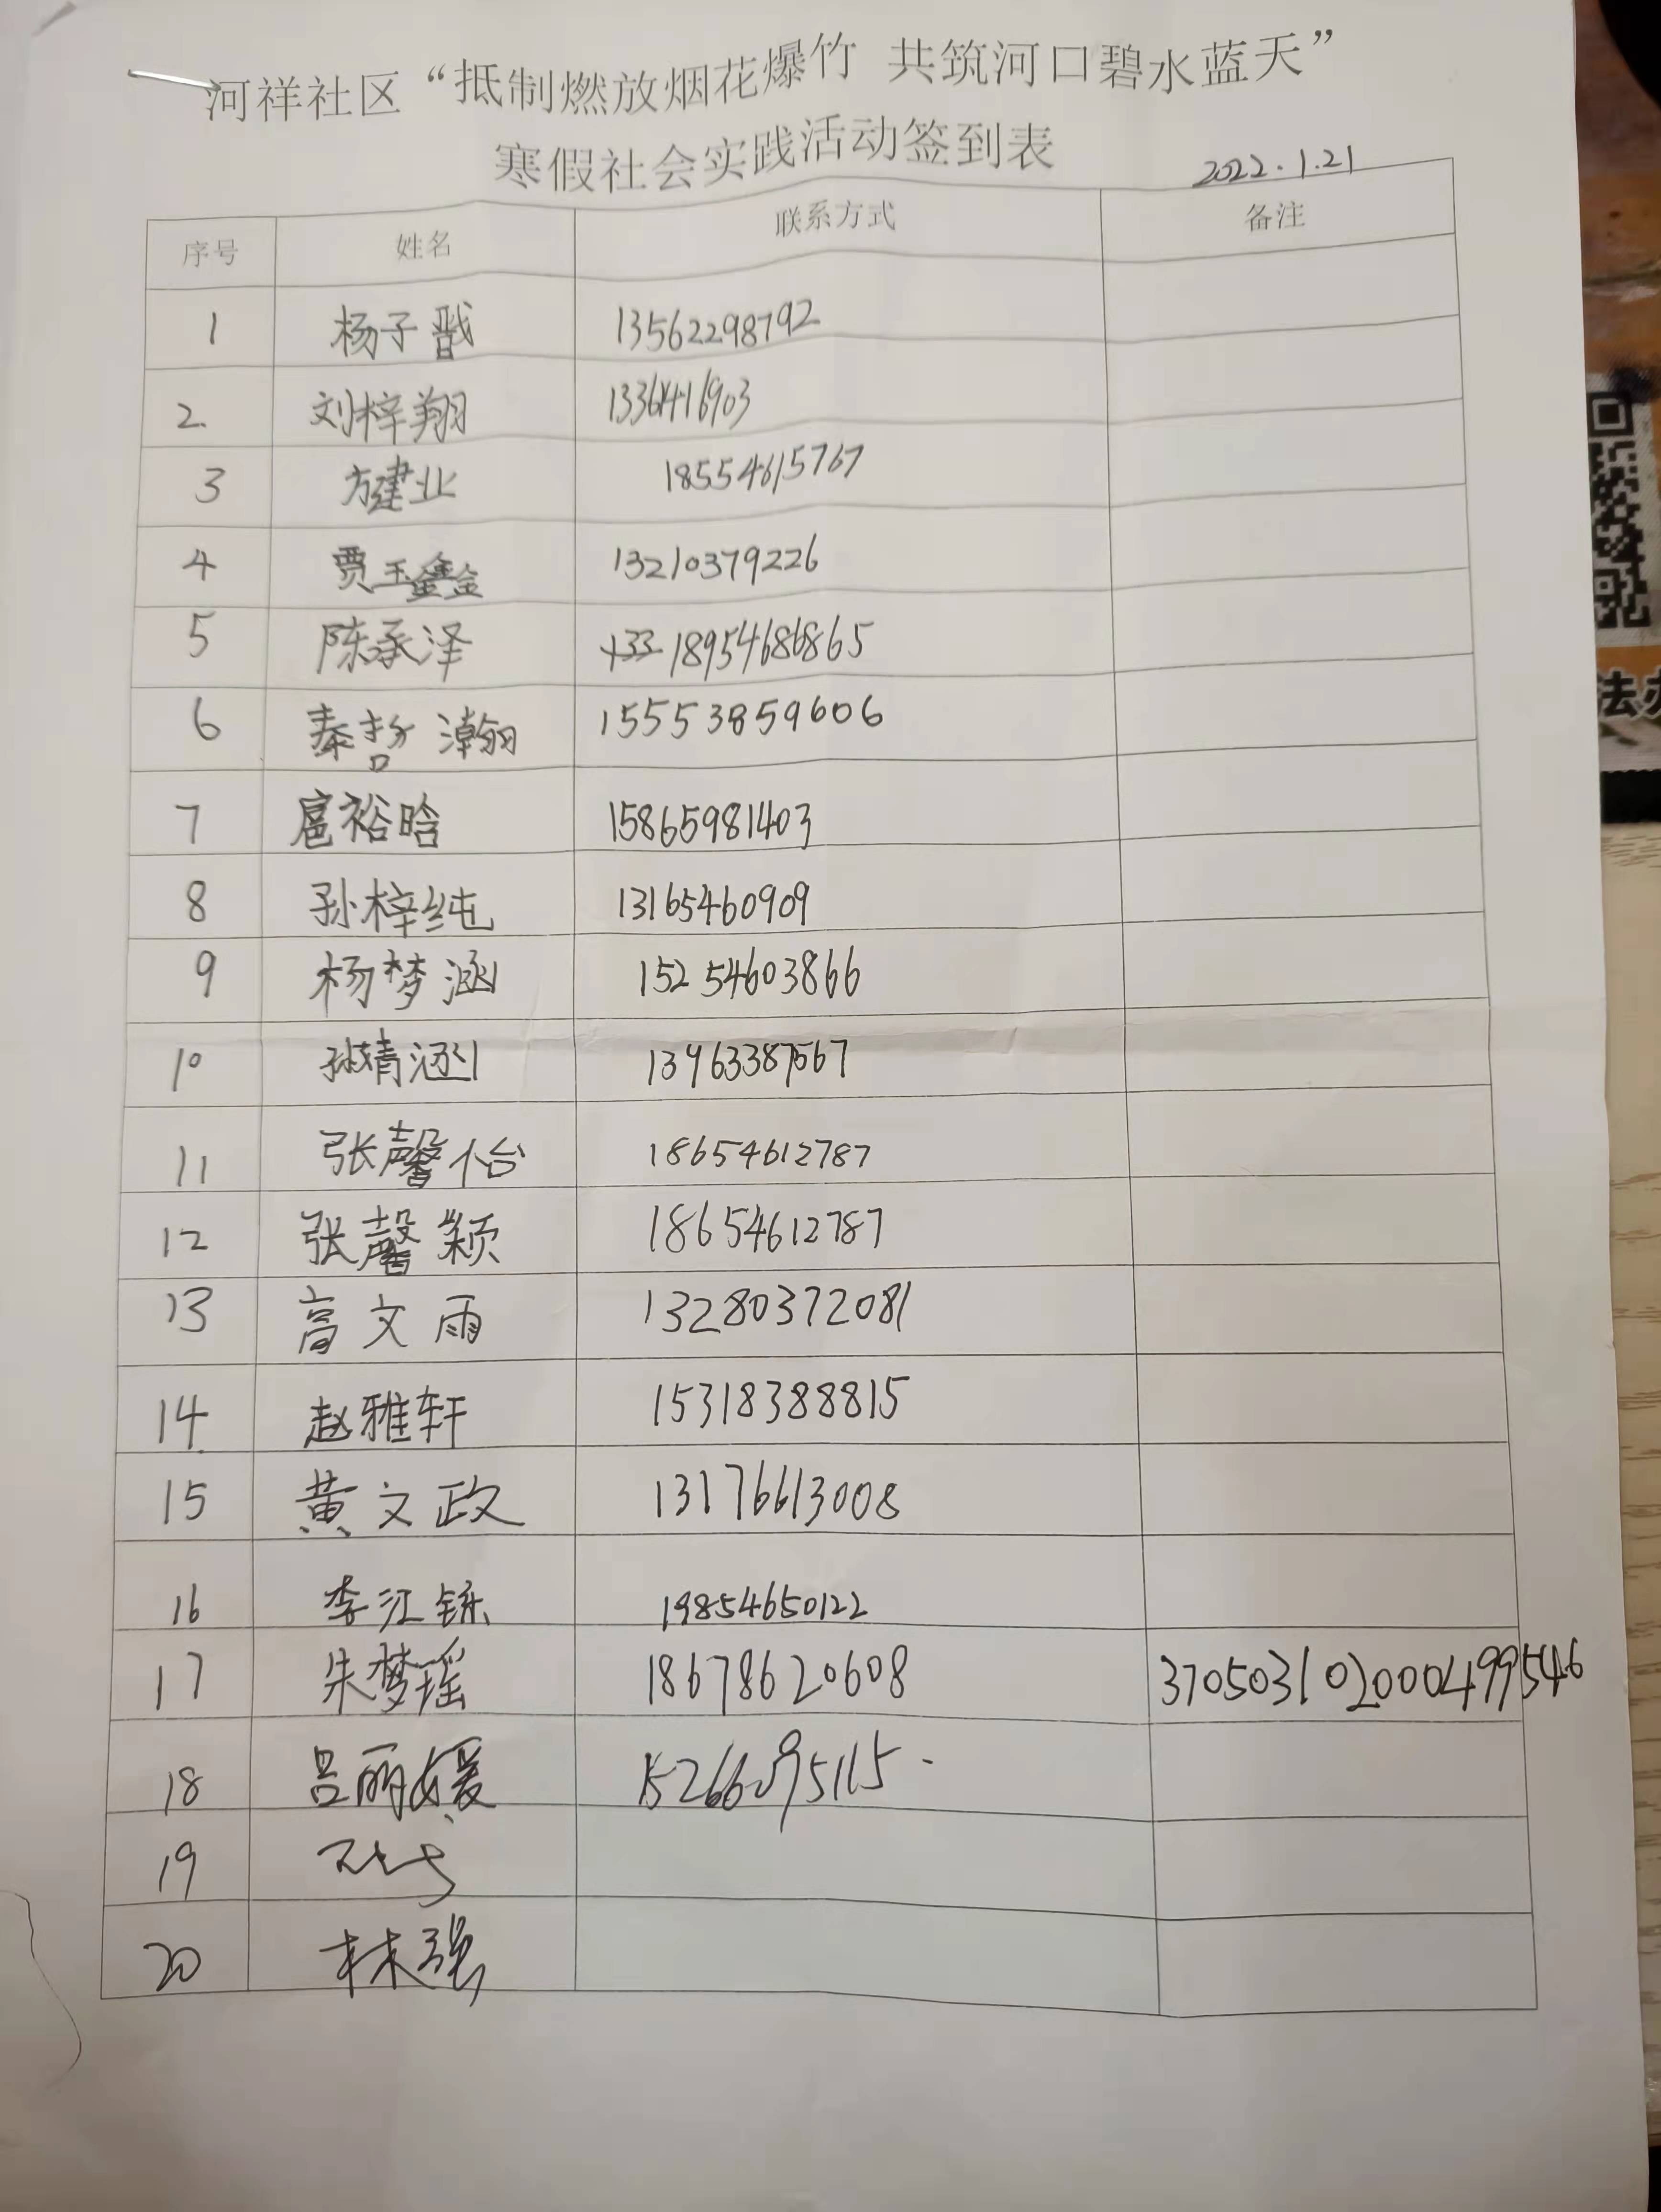 河祥社区“抵制燃放烟花爆竹 共筑河口碧水蓝天”
寒假社会实践活动签到表
2022.1.21
序号 姓名 联系方式 备注
1 杨子戬 13562298792
2. 刘梓翔
3 方建业 18554615767
4 贾玉鑫 13210379226
5 陈承泽 18954686865
6 秦哲瀚 15553859606
7 扈裕晗 15865981403
8 孙梓纯 13165460909
9 杨梦涵 15254603866
10 孙靖涵
11 张馨怡 18654612787
12 张馨颖 18654612787
13 高文雨 13280372081
14 赵雅轩 15318388815
15 黄文政 13176613008
16 李江铄 19854650122
17 朱梦瑶 18678620608 370503102000499546
18 吕丽媛
19
20 林强
法办